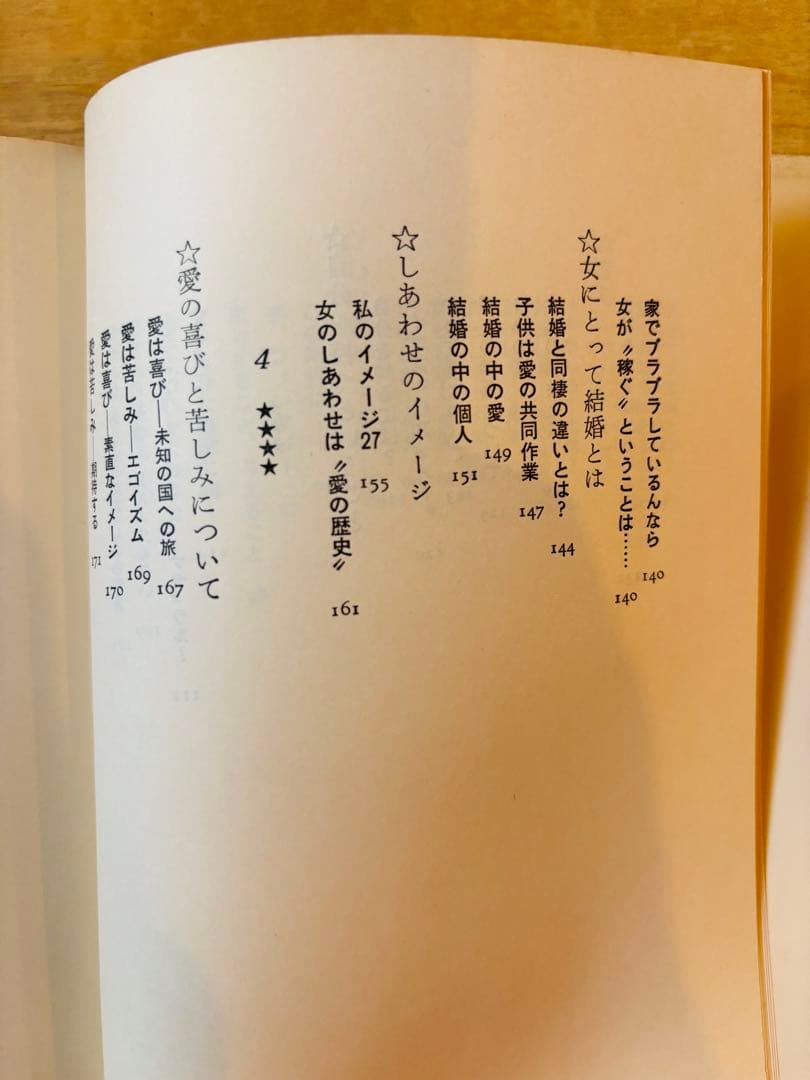 家でブラブラしているんなら 140
女が〝稼ぐ〟ということは…… 140
☆女にとって結婚とは
結婚と同棲の違いとは? 144
子供は愛の共同作業 147
結婚の中の愛 149
結婚の中の個人 151
☆しあわせのイメージ
私のイメージ27 155
女のしあわせは〝愛の歴史〟 161
4 ★★★★
☆愛の喜びと苦しみについて
愛は喜び——未知の国への旅 167
愛は苦しみ——エゴイズム 169
愛は喜び——素直なイメージ 170
愛は苦しみ——期待する 171